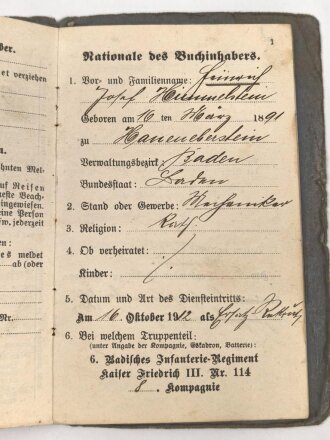 1
Nationale des Buchinhabers.
1. Vor- und Familienname: Heinrich
Josef Himmelstein
Geboren am 16 ten März 1891
zu Haueneberstein
Verwaltungsbezirk: Baden
Bundesstaat: Baden
2. Stand oder Gewerbe: Mechaniker
3. Religion: Kath
4. Ob verheiratet:
Kinder:
5. Datum und Art des Diensteintritts:
Am 16 Oktober 1912 als Ersatz Rekrut
6. Bei welchem Truppenteil:
(unter Angabe der Kompagnie, Eskadron, Batterie):
6. Badisches Infanterie-Regiment
Kaiser Friedrich III. Nr. 114
8. Kompagnie
ber.
et verziehen
hnten Mel-
uf Reisen
neste Beach-
ingewiesen.
ine Person
fw, jederzeit
es meldet
ab (oder
Nr.